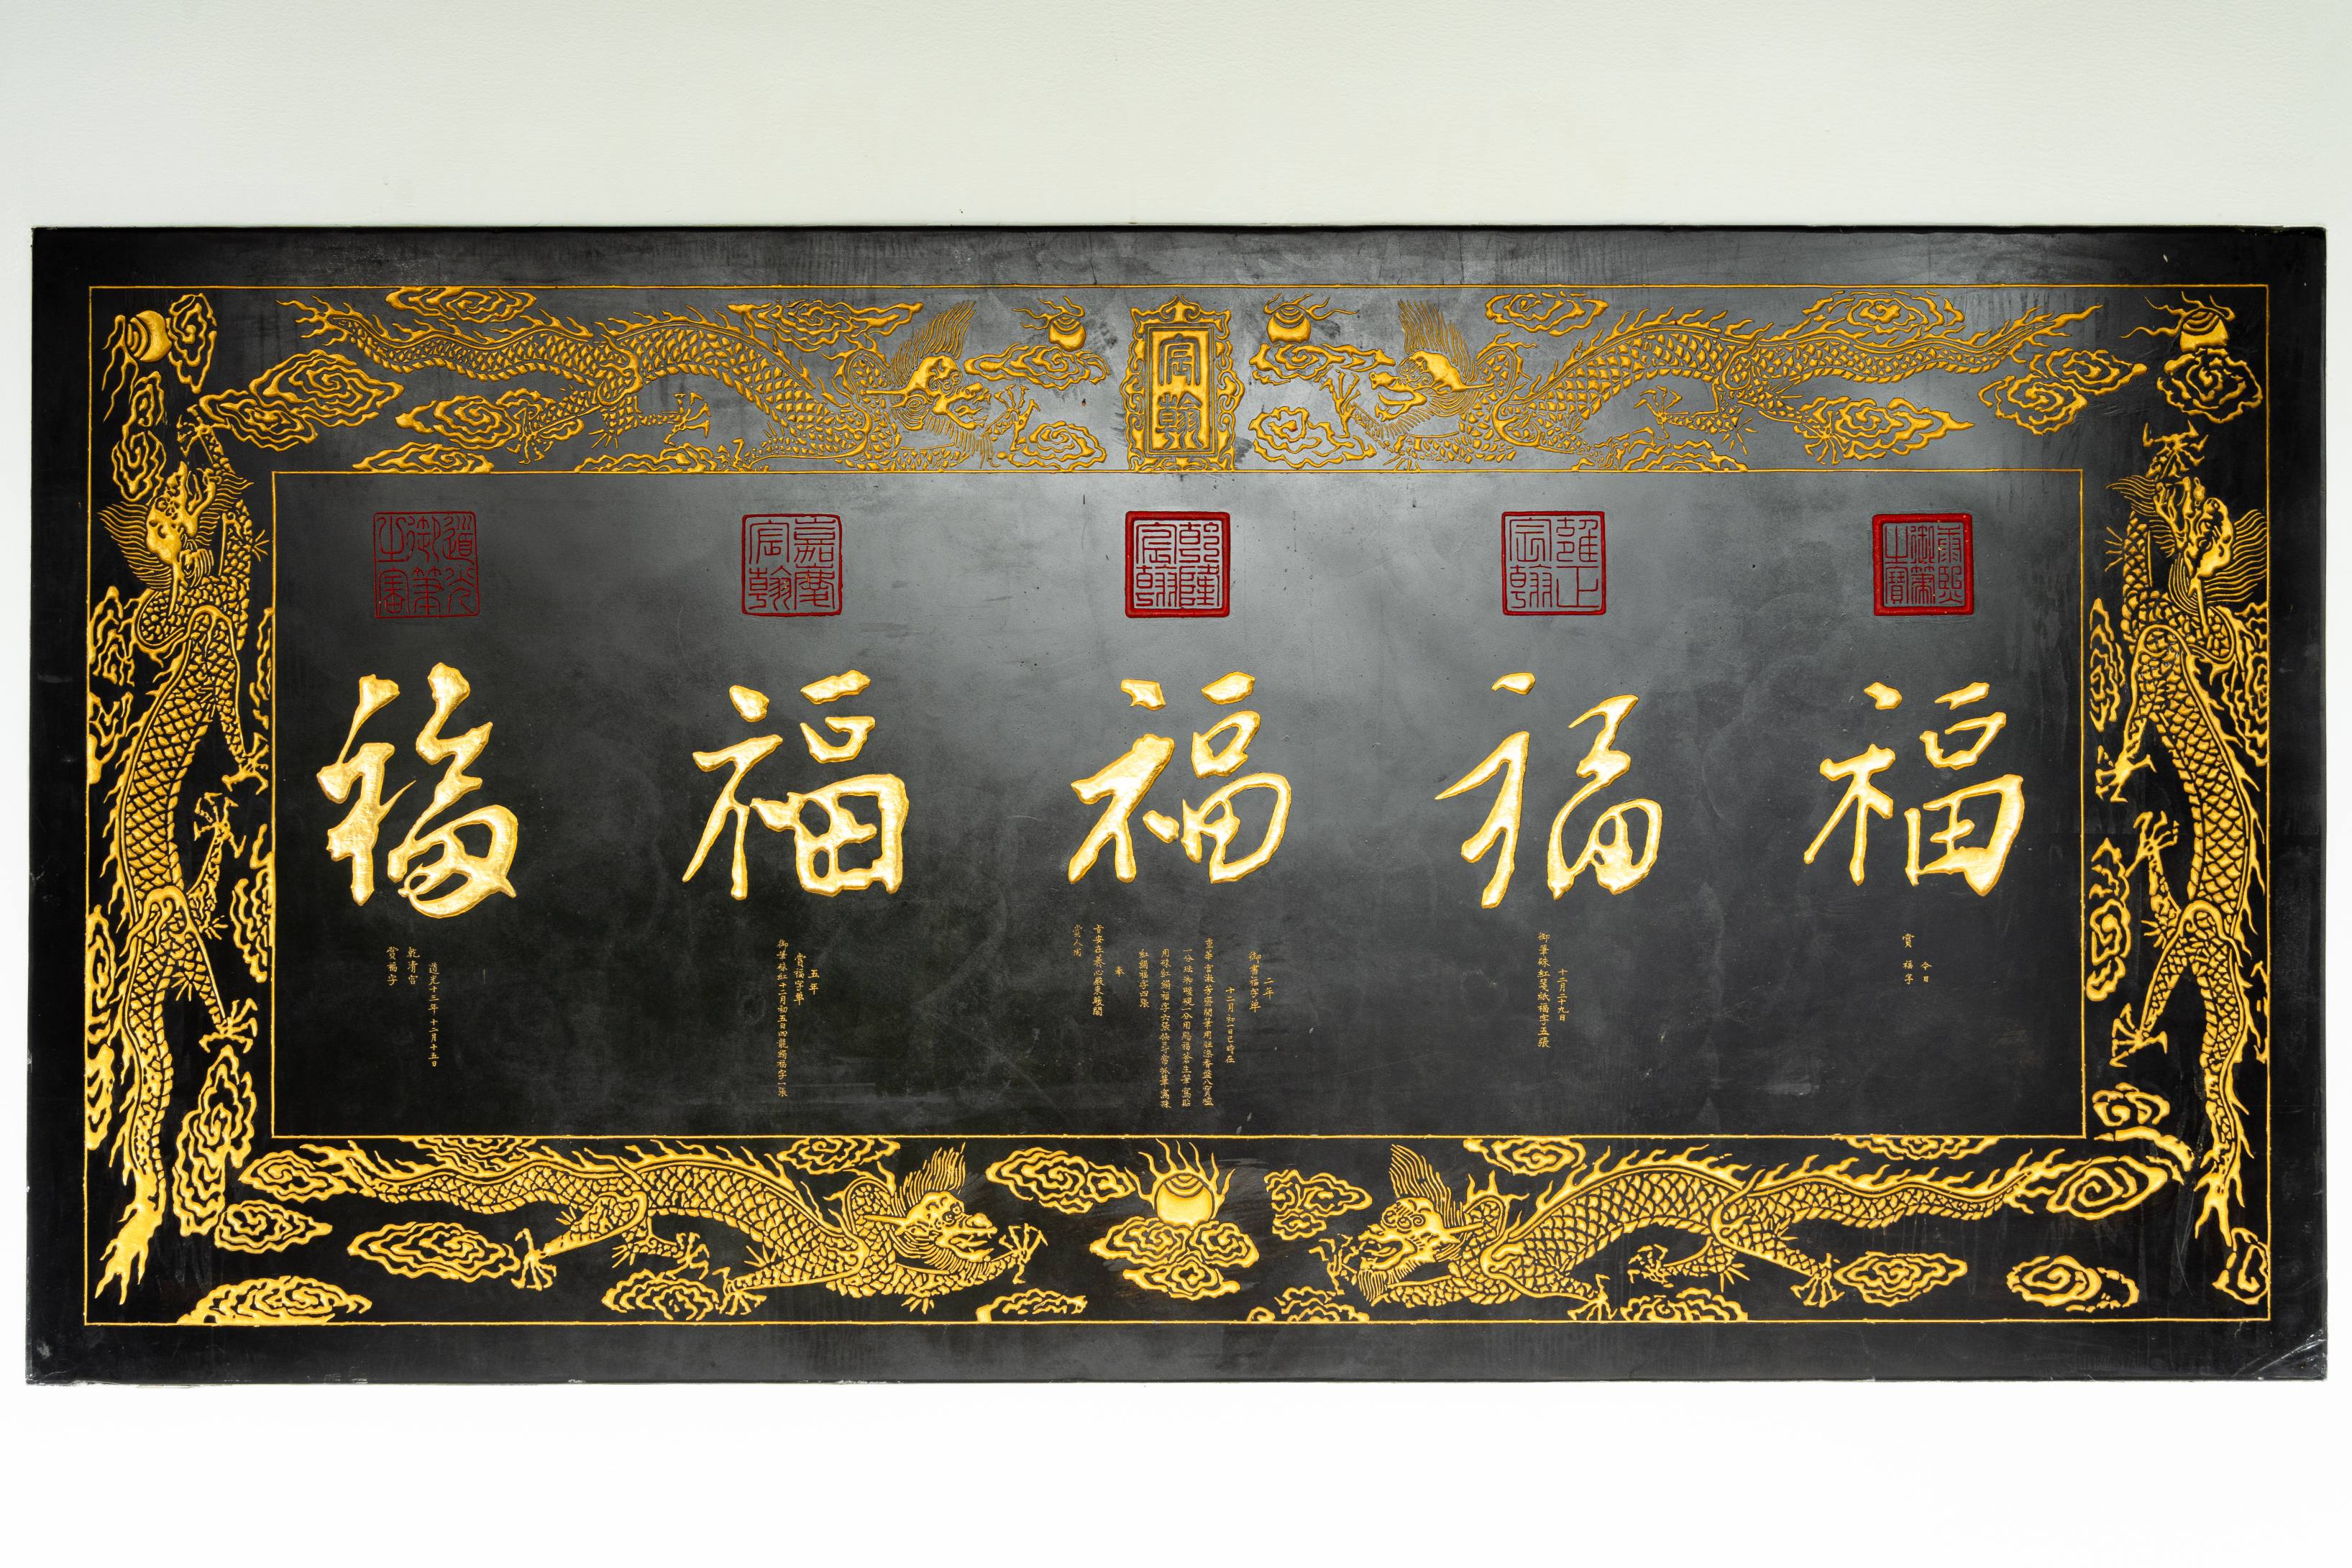 宸翰
康熙御筆之寶
福
今日
賞福字
雍正宸翰
福
十二月二十九日
御筆硃紅箋紙福字五張
乾隆宸翰
福
二年
御書福字单
十二月初一日巳時在
重華宮漱芳齋開筆用
用硃紅絹福字六張
紅絹福字四張
奉
旨安在養心殿東暖閣
賞人用
嘉慶宸翰
福
五年
賞福字单
御筆絲紅十二月初五日四龍絹福字一張
道光御筆之寶
福
道光十三年十二月十五日
乾清宮
賞福字